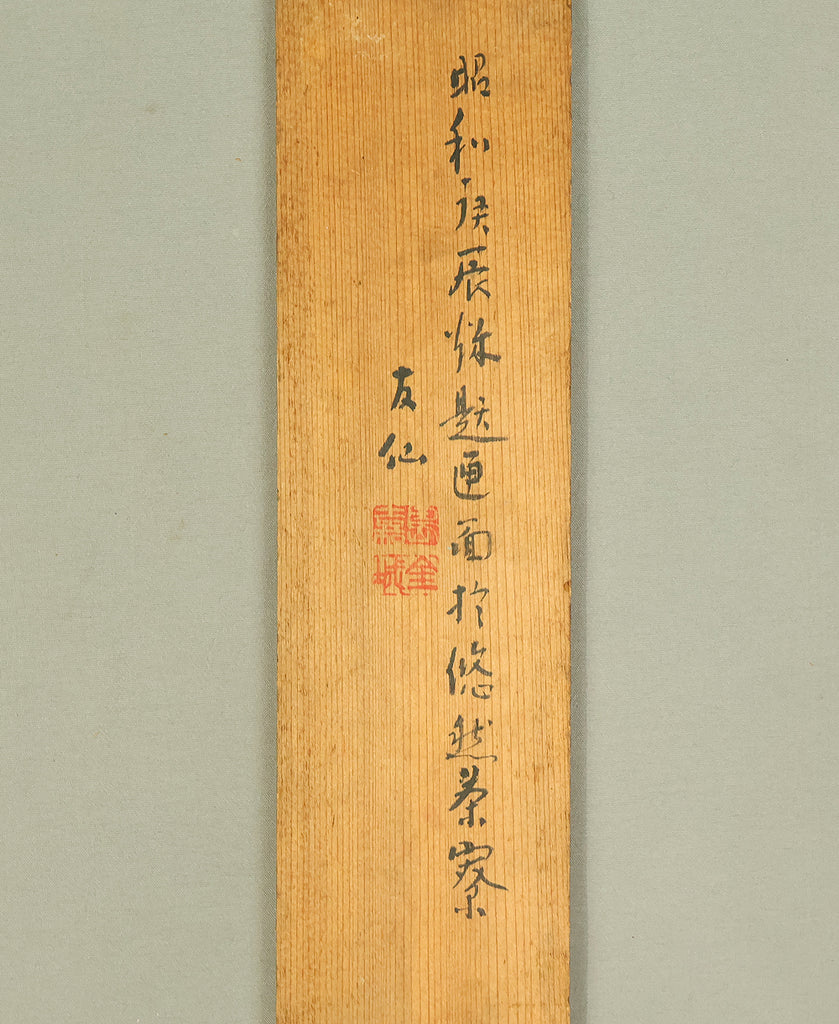 昭和庚辰烁題匣面於悠然茶寮
友仙